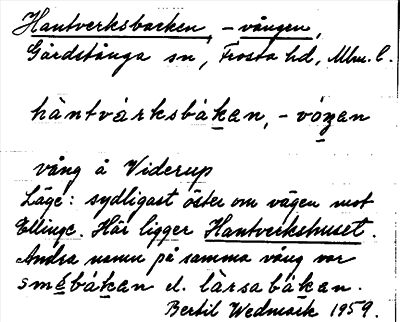 Hantverksbacken, -vången,
Gårdstånga sn, Frosta hd, Mlm. l.
hàntvàrksbákan, -vóŋan
vång å Viderup
Läge: sydligast öster om vägen mot
Ellinge. Här ligger Hantverkshuset.
Andra namn på samma vång var
smébákan el. làrsabákan.
Bertil Wedmark 1959.